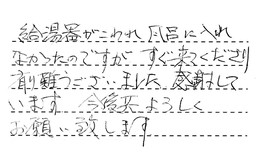 給湯器がこわれ風呂に入れ
なかったのですが すぐ来てくださり
有難うございました 感謝して
います 今後共よろしく
お願い致します